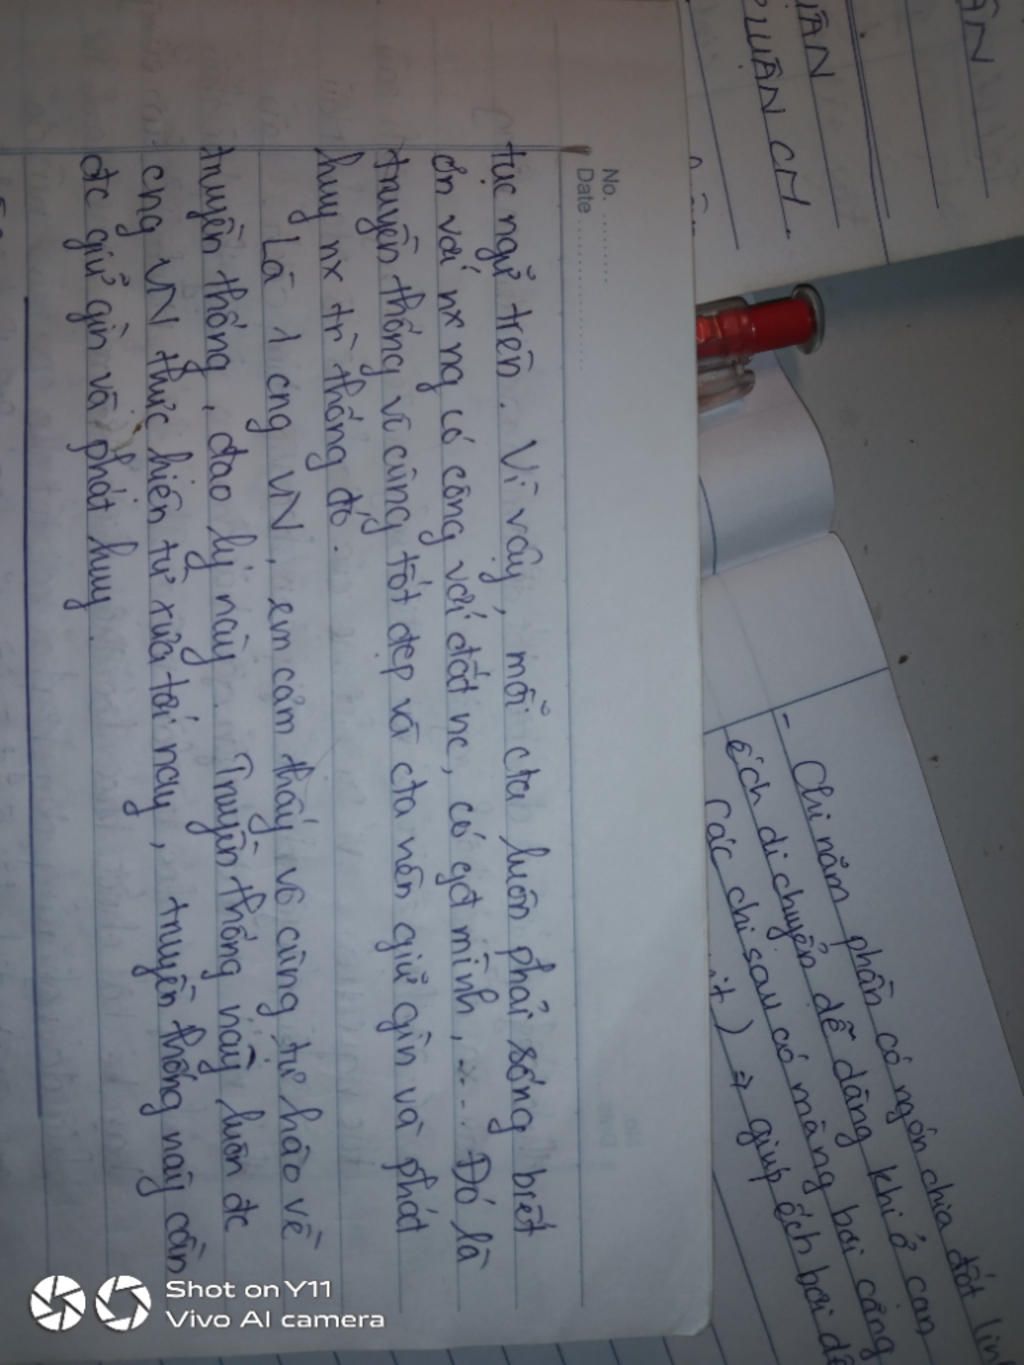 No. ..........
Date ......................
tục ngữ trên. Vì vậy, mỗi cta luôn phải sống biết
ơn với nx ng có công với đất nc, có gđ mình, ... Đó là
truyền thống vô cùng tốt đẹp và cta nên giữ gìn và phát
huy nx tr` thống đó.
Là 1 cng VN, em cảm thấy vô cùng tự hào về
truyền thống, đạo lý này. Truyền thống này luôn đc
cng VN thực hiện từ xưa tới nay, truyền thống này cần
đc giữ gìn và phát huy.
ÂN
LUẬN CM.
- Chi nằm phần có ngón chia đốt lin
ếch di chuyển dễ dàng khi ở cạn
Các chi sau có màng bơi căng
ít) => giúp ếch bơi dễ
Shot on Y11
Vivo AI camera